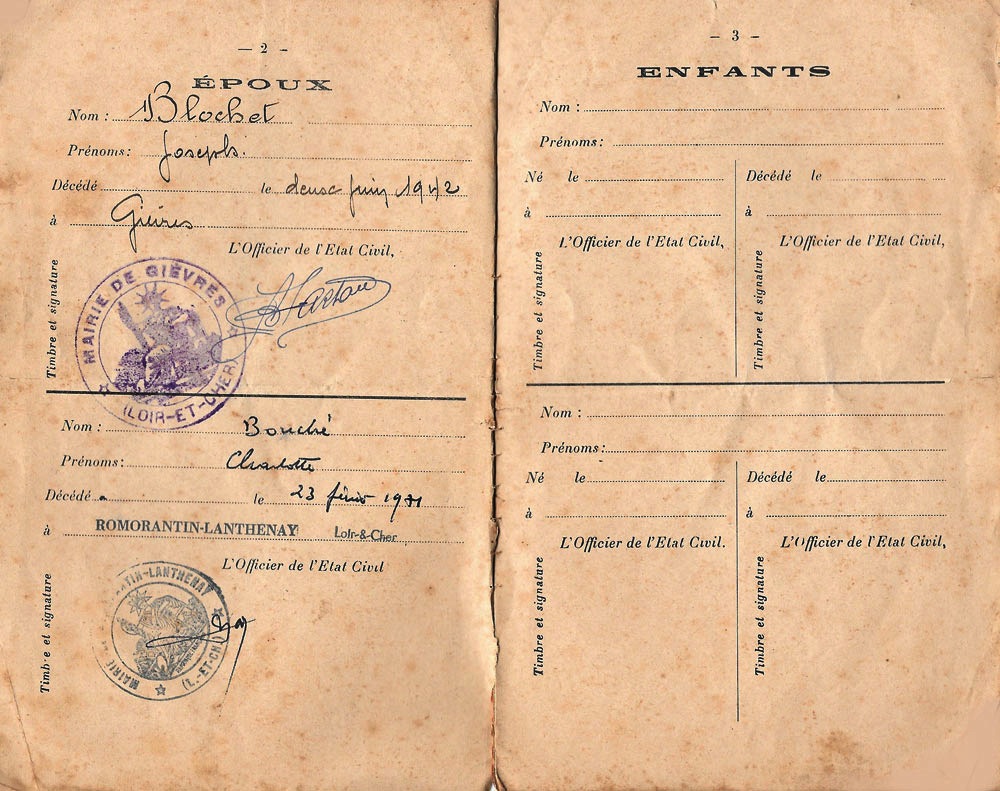 — 2 —
ÉPOUX
Nom : Blochet
Prénoms: Joseph.
Décédé le deux juin 1942
à Gièvres
L'Officier de l'Etat Civil,
Timbre et signature
MAIRIE DE GIÈVRES
(LOIR-ET-CHER)
Nom : Bouché
Prénoms: Charlotte
Décédé le 23 févier
à ROMORANTIN-LANTHENAY Loir-&-Cher
L'Officier de l'Etat Civil
Timbre et signature
MAIRIE
TIN-LANTHENAY
(L.-ET-CH.)
— 3 —
ENFANTS
Nom :
Prénoms:
Né le
à
L'Officier de l'Etat Civil,
Timbre et signature
Décédé le
à
L'Officier de l'Etat Civil,
Timbre et signature
Nom :
Prénoms:
Né le
à
L'Officier de l'Etat Civil.
Timbre et signature
Décédé le
à
L'Officier de l'Etat Civil,
Timbre et signature